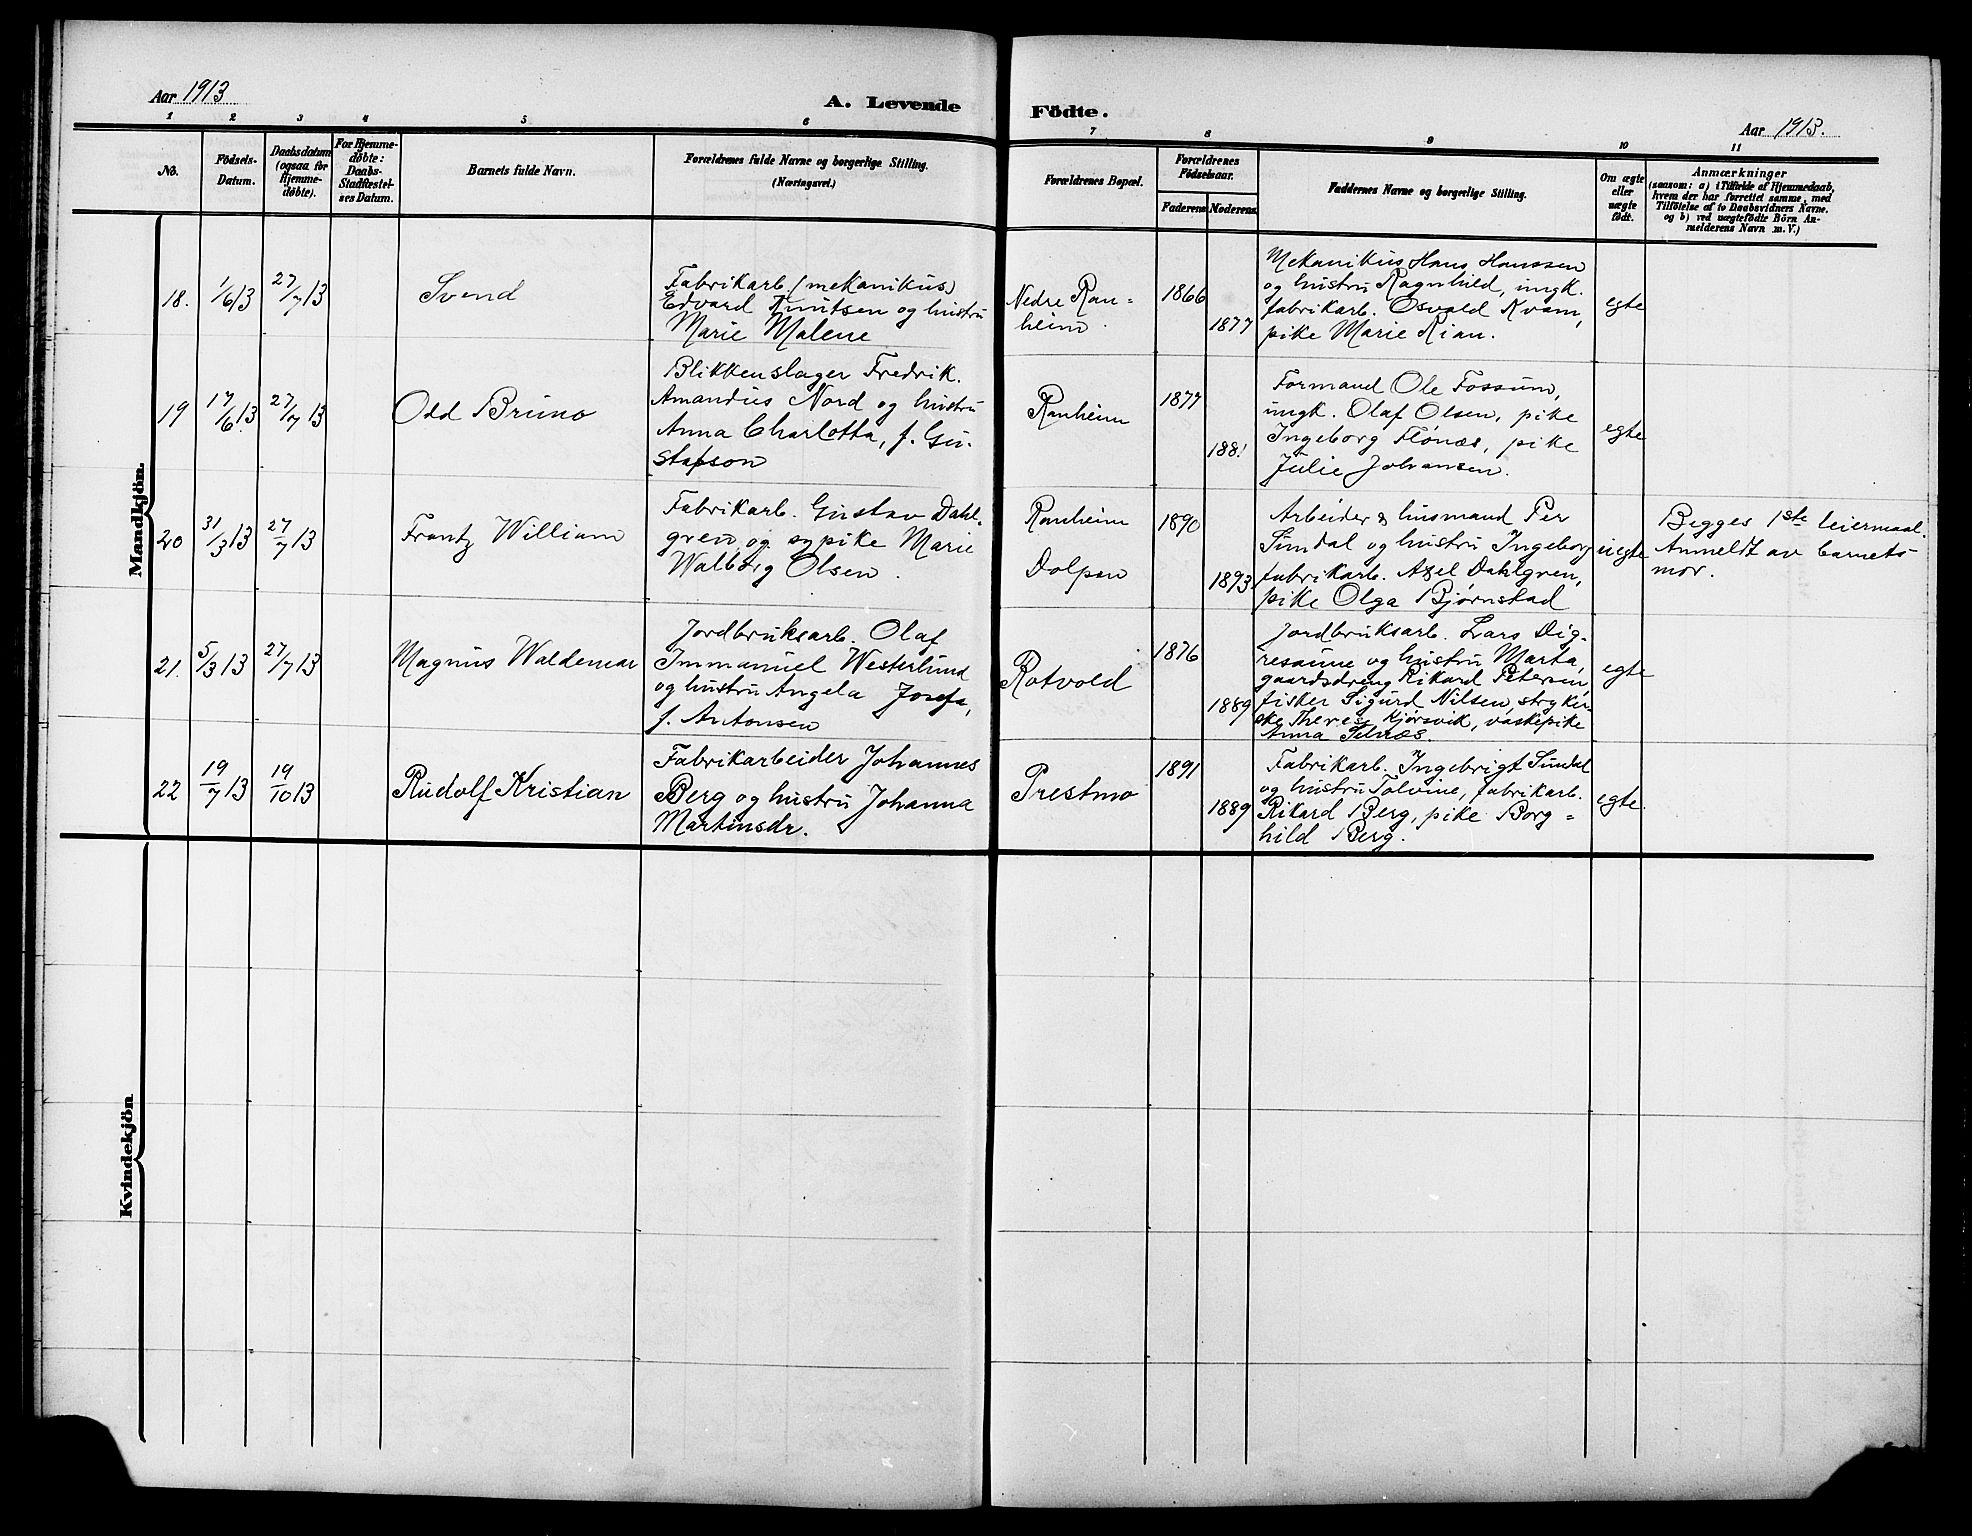 Aar 1913
A. Levende
Födte.
Aar 1913.
1 2 3 4 5 6 7 8 9 10 11
No.
Födsels-
Datum.
Daabsdatum
(ogsaa for
Hjemme-
döbte).
For Hjemme-
döbte:
Daabs-
Stadfæstel-
ses Datum.
Barnets fulde Navn.
Forældrenes fulde Navne og borgerlige Stilling.
(Næringsvei.)
Forældrenes Bopæl.
Forældrenes
Födselsaar.
Faderens
Moderens
Faddernes Navne og borgerlige Stilling.
Om ægte
eller
uægte
födt.
Anmærkninger
(saasom: a) i Tilfælde af Hjemmedaab,
hvem der har forrettet samme, med
Tilföielse af to Daabsvidners Navne.
og b) ved uægtefödte Börn An-
melderens Navn m. V.)
Mandkjön.
18.
1/6 13
27/7 13
Svend
Fabrikarb. (mekanikus)
Edvard Knutsen og hustru
Marie Malene
Nedre Ran-
heim.
1866
1877
Mekanikus Hans Hanssen
og hustru Ragnhild, ungk.
fabrikarb. Osvald Kvam,
pike Marie Rian.
egte
19
17/6 13
27/7 13
Odd Bruno
Blikkenslager Fredrik
Amandus Nord og hustru
Anna Charlotta, f. Gu-
stafson
Ranheim
1877
1881
Formand Ole Fossum,
ungk. Olaf Olsen, pike
Ingeborg Flönæs, pike
Julie Johansen.
egte
20
31/3 13
27/7 13
Frantz William
Fabrikarb. Gustav Dahl-
gren og sypike Marie
Walborg Olsen.
Ranheim
Dolpen
1890
1893
Arbeider & husmand Per
Sundal og hustru Ingeborg
fabrikarb. Axel Dahlgren,
pike Olga Bjørnstad
uegte
Begges 1ste leiermaal.
Anmeldt av barnets
mor.
21.
5/3 13
27/7 13
Magnus Waldemar
Jordbruksarb. Olaf
Immanuel Westerlund
og hustru Angela Josefa,
f. Antonsen
Rotvold
1876
1889
Jordbruksarb. Lars Dig-
resaune og hustru Marta,
gaardsdreng Rikard Petersen,
fisker Sigurd Nilsen, stryker-
ske Therese Kjørsvik, vaskepike
Anna
22
19/7 13
19/10 13
Rudolf Kristian
Fabrikarbeider Johannes
Berg og hustru Johanna
Martinsdr.
Prestmo
1891
1889
Fabrikarb. Ingebrigt Sundal
og hustru Tolvine, fabrikarb.
Rikard Berg, pike Borg=
hild Berg.
egte.
Kvindekjön